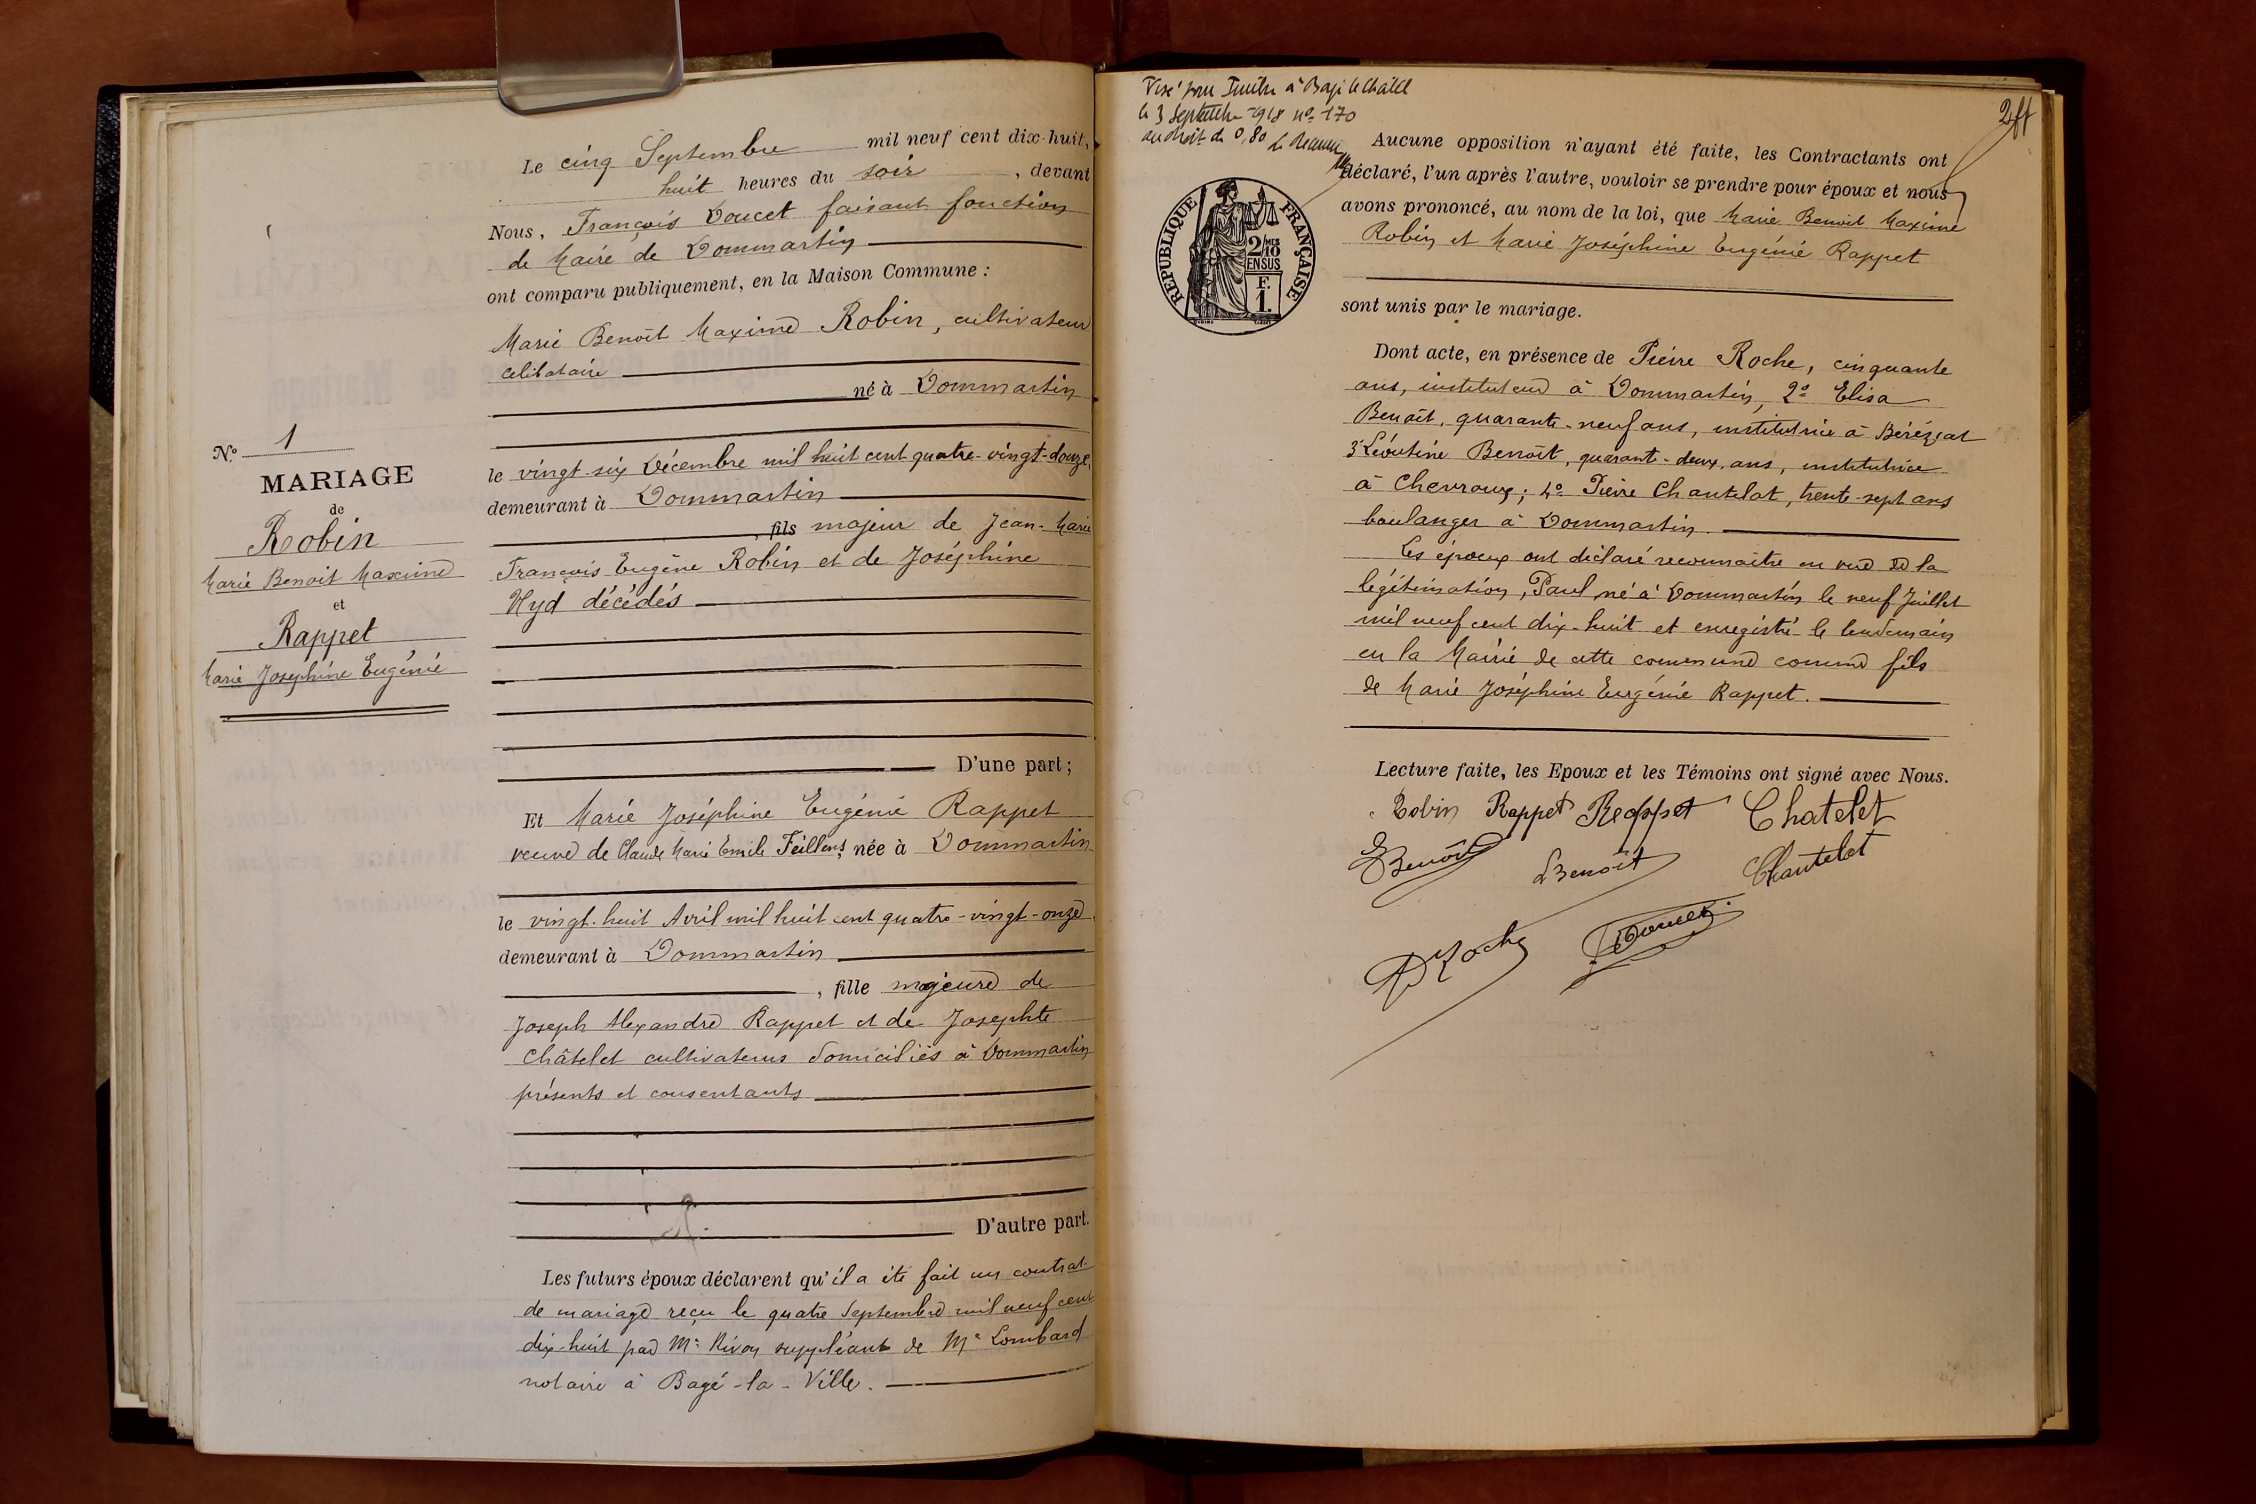 Le cinq Septembre mil neuf cent dix-huit,
huit heures du soir, devant
Nous, François Doucet faisant fonction
de Maire de Dommartin
ont comparu publiquement, en la Maison Commune :
Marie Benoît Maxime Robin, cultivateur
célibataire
né à Dommartin
le vingt-six Décembre mil huit cent quatre-vingt-douze,
demeurant à Dommartin
, fils majeur de Jean-Marie
François Eugène Robin et de Joséphine
Hyd décédés
D'une part ;
Et Marie Joséphine Eugénie Rappet
veuve de Claude Marie Emile Feillens, née à Dommartin
le vingt-huit Avril mil huit cent quatre-vingt-onze
demeurant à Dommartin
, fille majeure de
Joseph Alexandre Rappet et de Josephte
Châtelet cultivateurs domiciliés à Dommartin
présents et consentants
D'autre part.
Les futurs époux déclarent qu'il a été fait un contrat
de mariage reçu le quatre Septembre mil neuf cent
dix-huit par Me suppléant de Me Lombard
notaire à Bagé-la-Ville.
N° 1
MARIAGE
de
Robin
Marie Benoit Maxime
et
Rappet
Marie Joséphine Eugénie
Visé pour Timbre à Bagé le Châtel
le 3 Septembre 1918 n° 170
au droit de 0,80
2
RÉPUBLIQUE FRANÇAISE
2/10 MES
EN SUS
F.
1.
Aucune opposition n'ayant été faite, les Contractants ont
déclaré, l'un après l'autre, vouloir se prendre pour époux et nous
avons prononcé, au nom de la loi, que Marie Benoit Maxime
Robin et Marie Joséphine Eugénie Rappet
sont unis par le mariage.
Dont acte, en présence de Pierre Roche, cinquante
ans, instituteur à Dommartin, 2° Elisa
Benoît, quarante-neuf ans, institutrice à Béréziat
3° Léontine Benoît, quarante-deux ans, institutrice
à Chevroux ; 4° Pierre Chantelat, trente-sept ans
boulanger à Dommartin.
Les époux ont déclaré reconnaître en vue de la
légitimation, Paul né à Dommartin le neuf Juillet
mil neuf cent dix-huit et enregistré le lendemain
en la Mairie de cette commune comme fils
de Marie Joséphine Eugénie Rappet.
Lecture faite, les Epoux et les Témoins ont signé avec Nous.
Robin Rappet Rappet Chatelet
EBenoît LBenoît Chantelat
PRoche Doucet